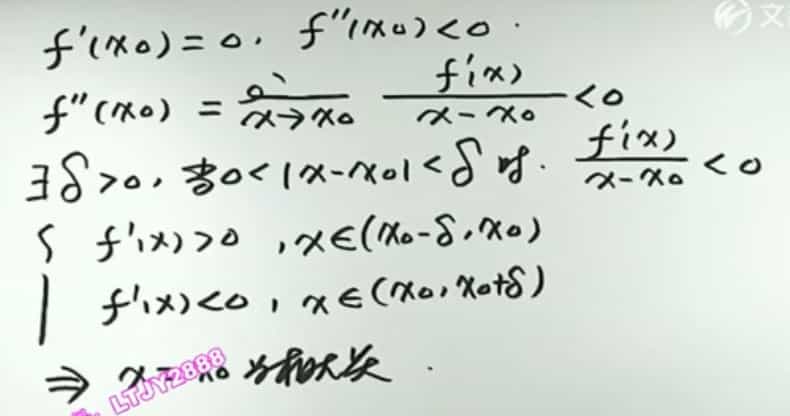 文
f'(x0) = 0. f''(x0) < 0.
f''(x0) = lim x→x0 f'(x)/(x - x0) < 0
∃δ>0, 当0<|x-x0|<δ时. f'(x)/(x-x0) < 0
{ f'(x)>0, x∈(x0-δ, x0)
f'(x)<0, x∈(x0, x0+δ)
⇒ x = x0 为极大点.
LTJY2888